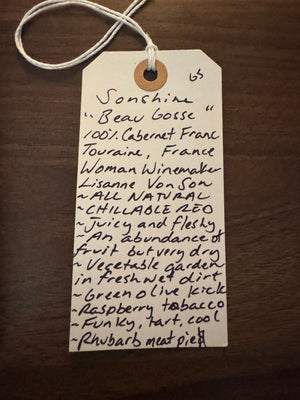 Sonshine
"Beau Gosse"
100% Cabernet Franc
Touraine, France
Woman Winemaker
Lisanne Van Son
~ALL NATURAL
~CHILLABLE RED
~Juicy and fleshy
~An abundance of
fruit but very dry
~Vegetable garden
in fresh wet dirt
~Green olive kick
~Raspberry tobacco
~Funky, tart, cool
~Rhubarb meat pie